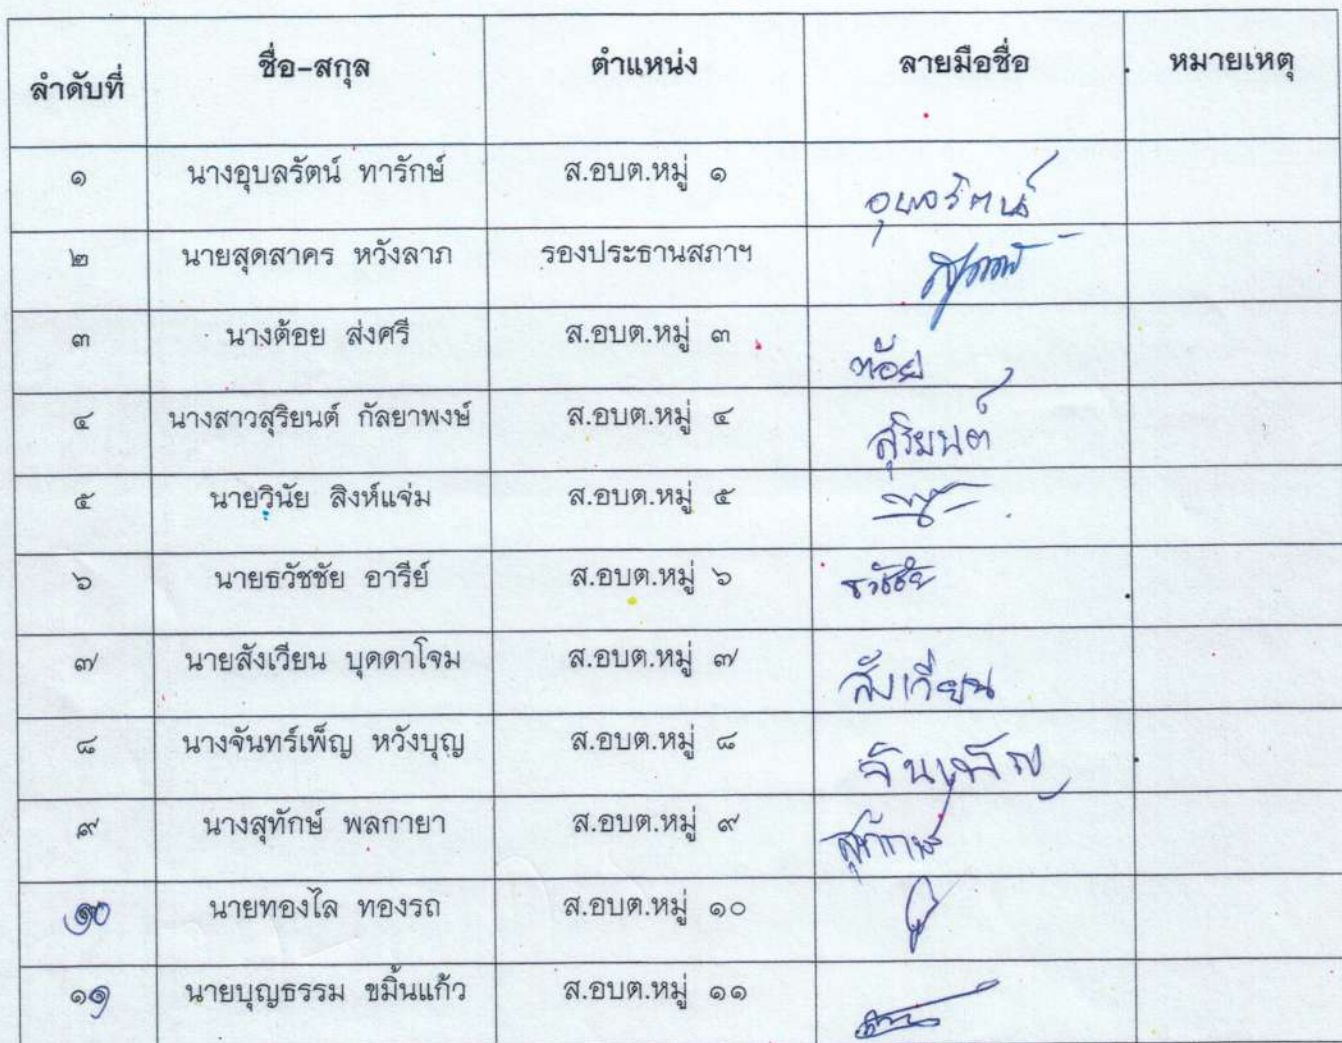 ลำดับที่ ชื่อ-สกุล ตำแหน่ง ลายมือชื่อ หมายเหตุ
๑ นางอุบลรัตน์ ทารักษ์ ส.อบต.หมู่ ๑ อุบลรัตน์
๒ นายสุดสาคร หวังลาภ รองประธานสภาฯ
๓ นางต้อย ส่งศรี ส.อบต.หมู่ ๓ ต้อย
๔ นางสาวสุริยนต์ กัลยาพงษ์ ส.อบต.หมู่ ๔ สุริยนต์
๕ นายวินัย สิงห์แจ่ม ส.อบต.หมู่ ๕
๖ นายธวัชชัย อารีย์ ส.อบต.หมู่ ๖ ธวัชชัย
๗ นายสังเวียน บุดดาโจม ส.อบต.หมู่ ๗ สังเวียน
๘ นางจันทร์เพ็ญ หวังบุญ ส.อบต.หมู่ ๘
๙ นางสุทักษ์ พลกายา ส.อบต.หมู่ ๙ สุทักษ์
๑๐ นายทองไล ทองรถ ส.อบต.หมู่ ๑๐
๑๑ นายบุญธรรม ขมิ้นแก้ว ส.อบต.หมู่ ๑๑